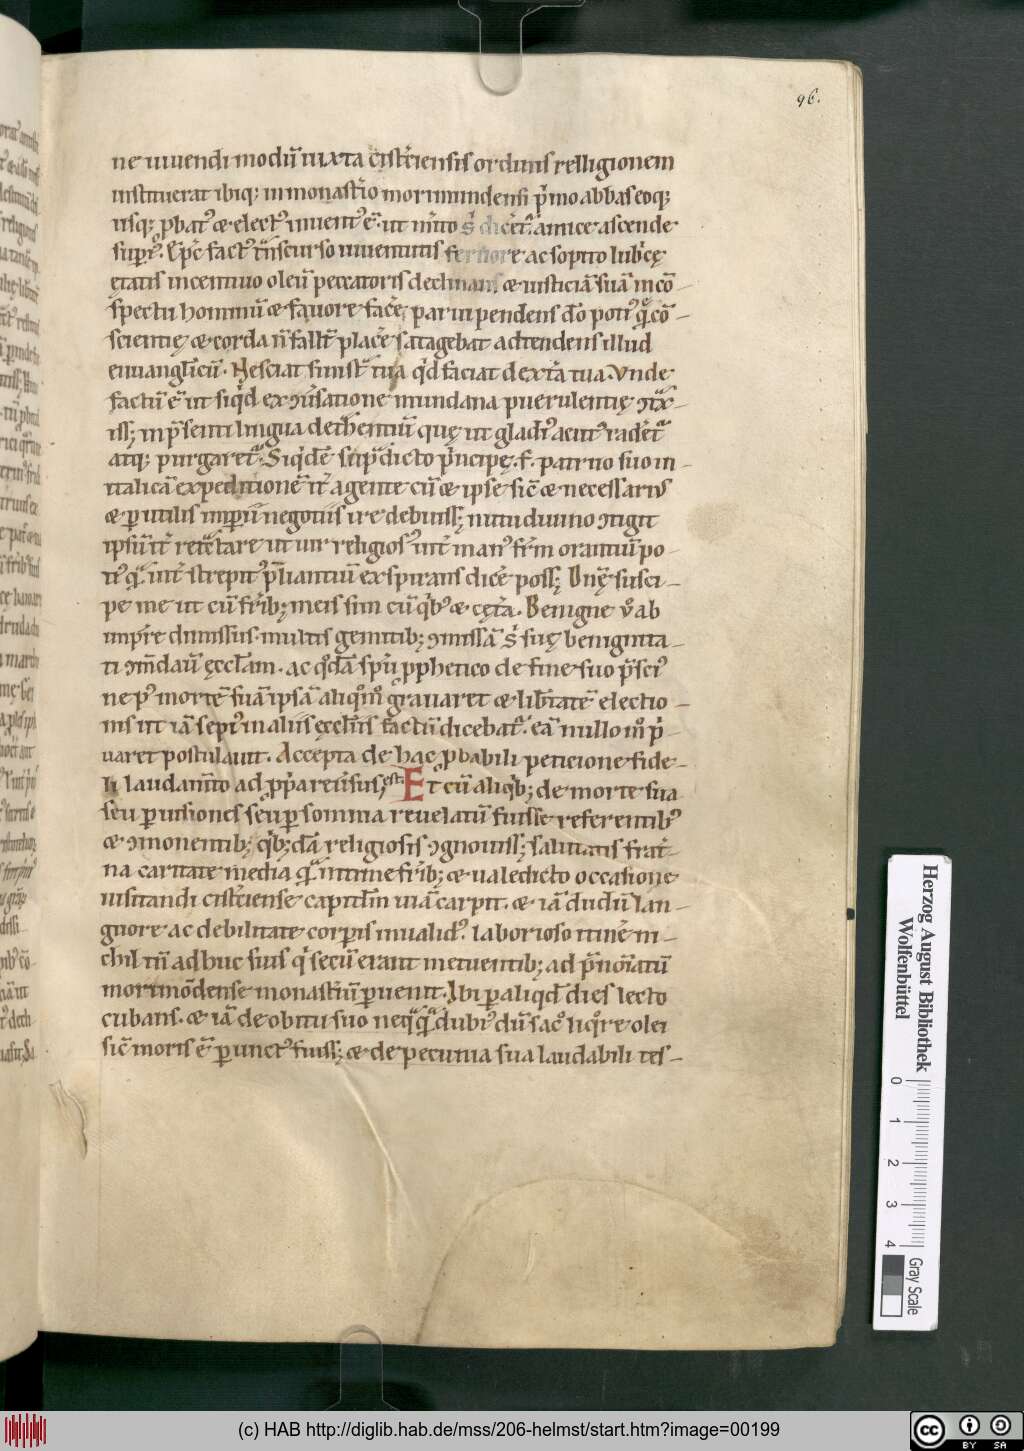 96.
ne uiuendi modū iuxta cistćiensis ordinis relligionem
instituerat ibiq; in monastío morimundensi p̍mo abbas eoq;
usq; ꝓbatꝰ & electꝰ inuentꝰ ē. ut míto s̍ dicet̃. amice ascende
supiꝰ. Epc̄ factꝰ t̃nscurso iuuentutis feruore ac sopito lubͥcę
ętatis incentiuo oleū peccatoris declinans. & iusticiā suā in cō-
spectu hominū & fauore facē parui pendens dō potiꝰ q̊ cō-
scientię & corda ñ fallt̃ placē satagebat adtendens illud
euuanglicū. Nesciat sinist̃ tua qͥd faciat dext̃a tua. Vnde
factū ē ut siqͥd ex ꝯuersatione mundana puerulentię ꝯt̃x-
iss; in p̃senti lingua det̃hentiū quę ut gladiꝰ acutꝰ radet̃
atq; purgaret̃. Siqͥdē sup̃dicto pͥncipę. f. patruo suo in-
italicā expeditionē it̃ agente cū & ipse sic̄ & necessariꝰ
& ꝑutilis impii negotiis ire debuiss; nutu diuino ꝯtigit
ipsū it̃ retẽtare ut uir religiosꝰ int̃ manꝰ fr̄m orantiū po-
tiꝰ q̃ int̃ strepitꝰ p̃liantiū exspirans dicē poss; Dn̄ę susci-
pe me ut cū fr̄ib; meis sim cū qͥbꝰ & cęt̃a. Benigne v̊ ab
imp̃re dimissus. multis gemitib; ꝯmissā s̍ suę benignita-
ti ꝯm̄dauit ęcclam. ac q̊dā sp̄u ꝓphetico de fine suo p̃sciꝰ
ne pꝰ mortē suā ipsā aliq̊m̊ grauaret & lib̃tatē electio-
nis ut iā sepiꝰ in aliis ęcclīis factū dicebat̃. eā nullo m̊ p̍-
uaret postulauit. Accepta de hac ꝓbabili peticione fide-
li laudam̃to ad ꝓp̃a reu̍sus; est. Et cū aliqͥb; de morte sua
seu ꝑ uisiones seu ꝑ somnia reuelatū fuisse referentibꝰ
& ꝯmonentib; qͥb;dā religiosis ꝯgnouiss; salutatis frat̃-
na caritate media q̃ intime fr̄ib; & ualedicto occasione
uisitandi cistćiense capitlm̄ uiā carpit. & iā dudū lan-
guore ac debilitate corꝑis inualidꝰ. laborioso itinē ni-
chil tn̄ adhuc suis qͥ secū erant metuentib; ad p̃noīatū
morimōdense monastiū ꝑuenit. Vbi ꝑ aliqd dies lecto
cubans. & iā de obitu suo neq̃q̃ dubiꝰ dū sac̊ liq̊re olei
sic̄ moris ē ꝑunctꝰ fuiss; & de pecunia sua laudabili tes-
Herzog August Bibliothek
Wolfenbüttel
0 1 2 3 4
Gray Scale
(c) HAB http://diglib.hab.de/mss/206-helmst/start.htm?image=00199
cc BY SA